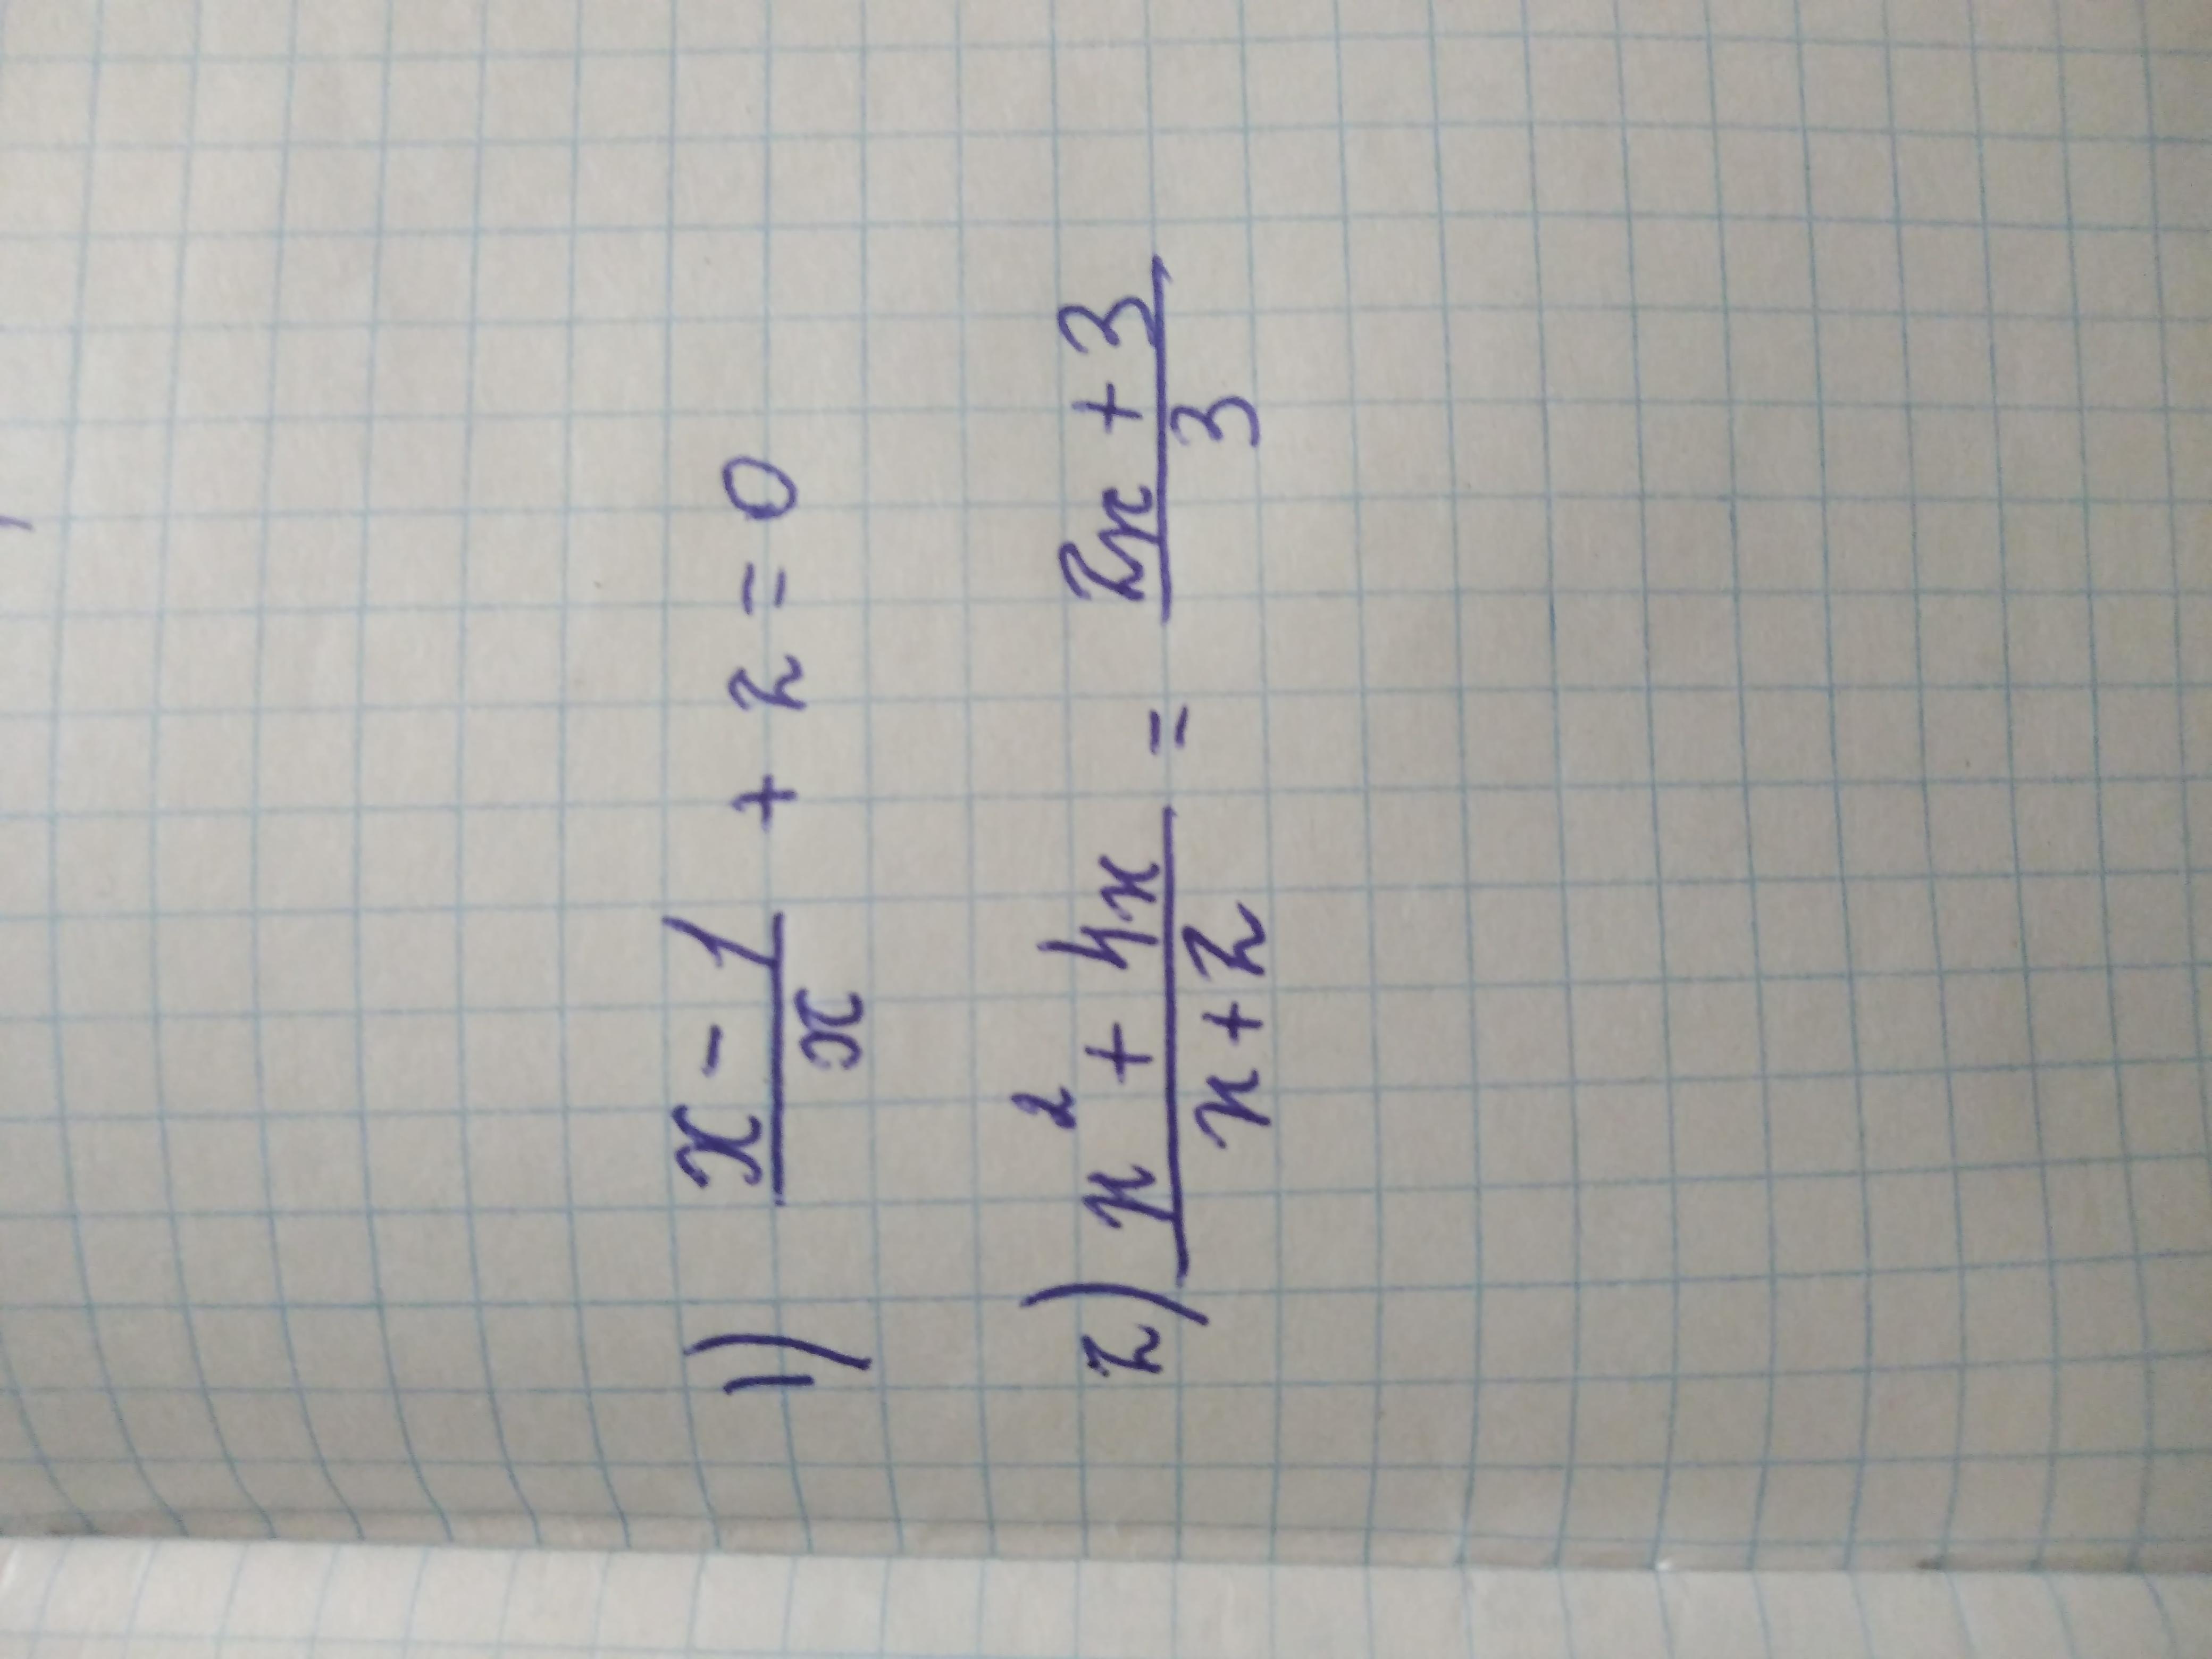 1) (x - 1)/x + 2 = 0
2) (x² + 4x)/(x + 2) = (2x + 3)/3